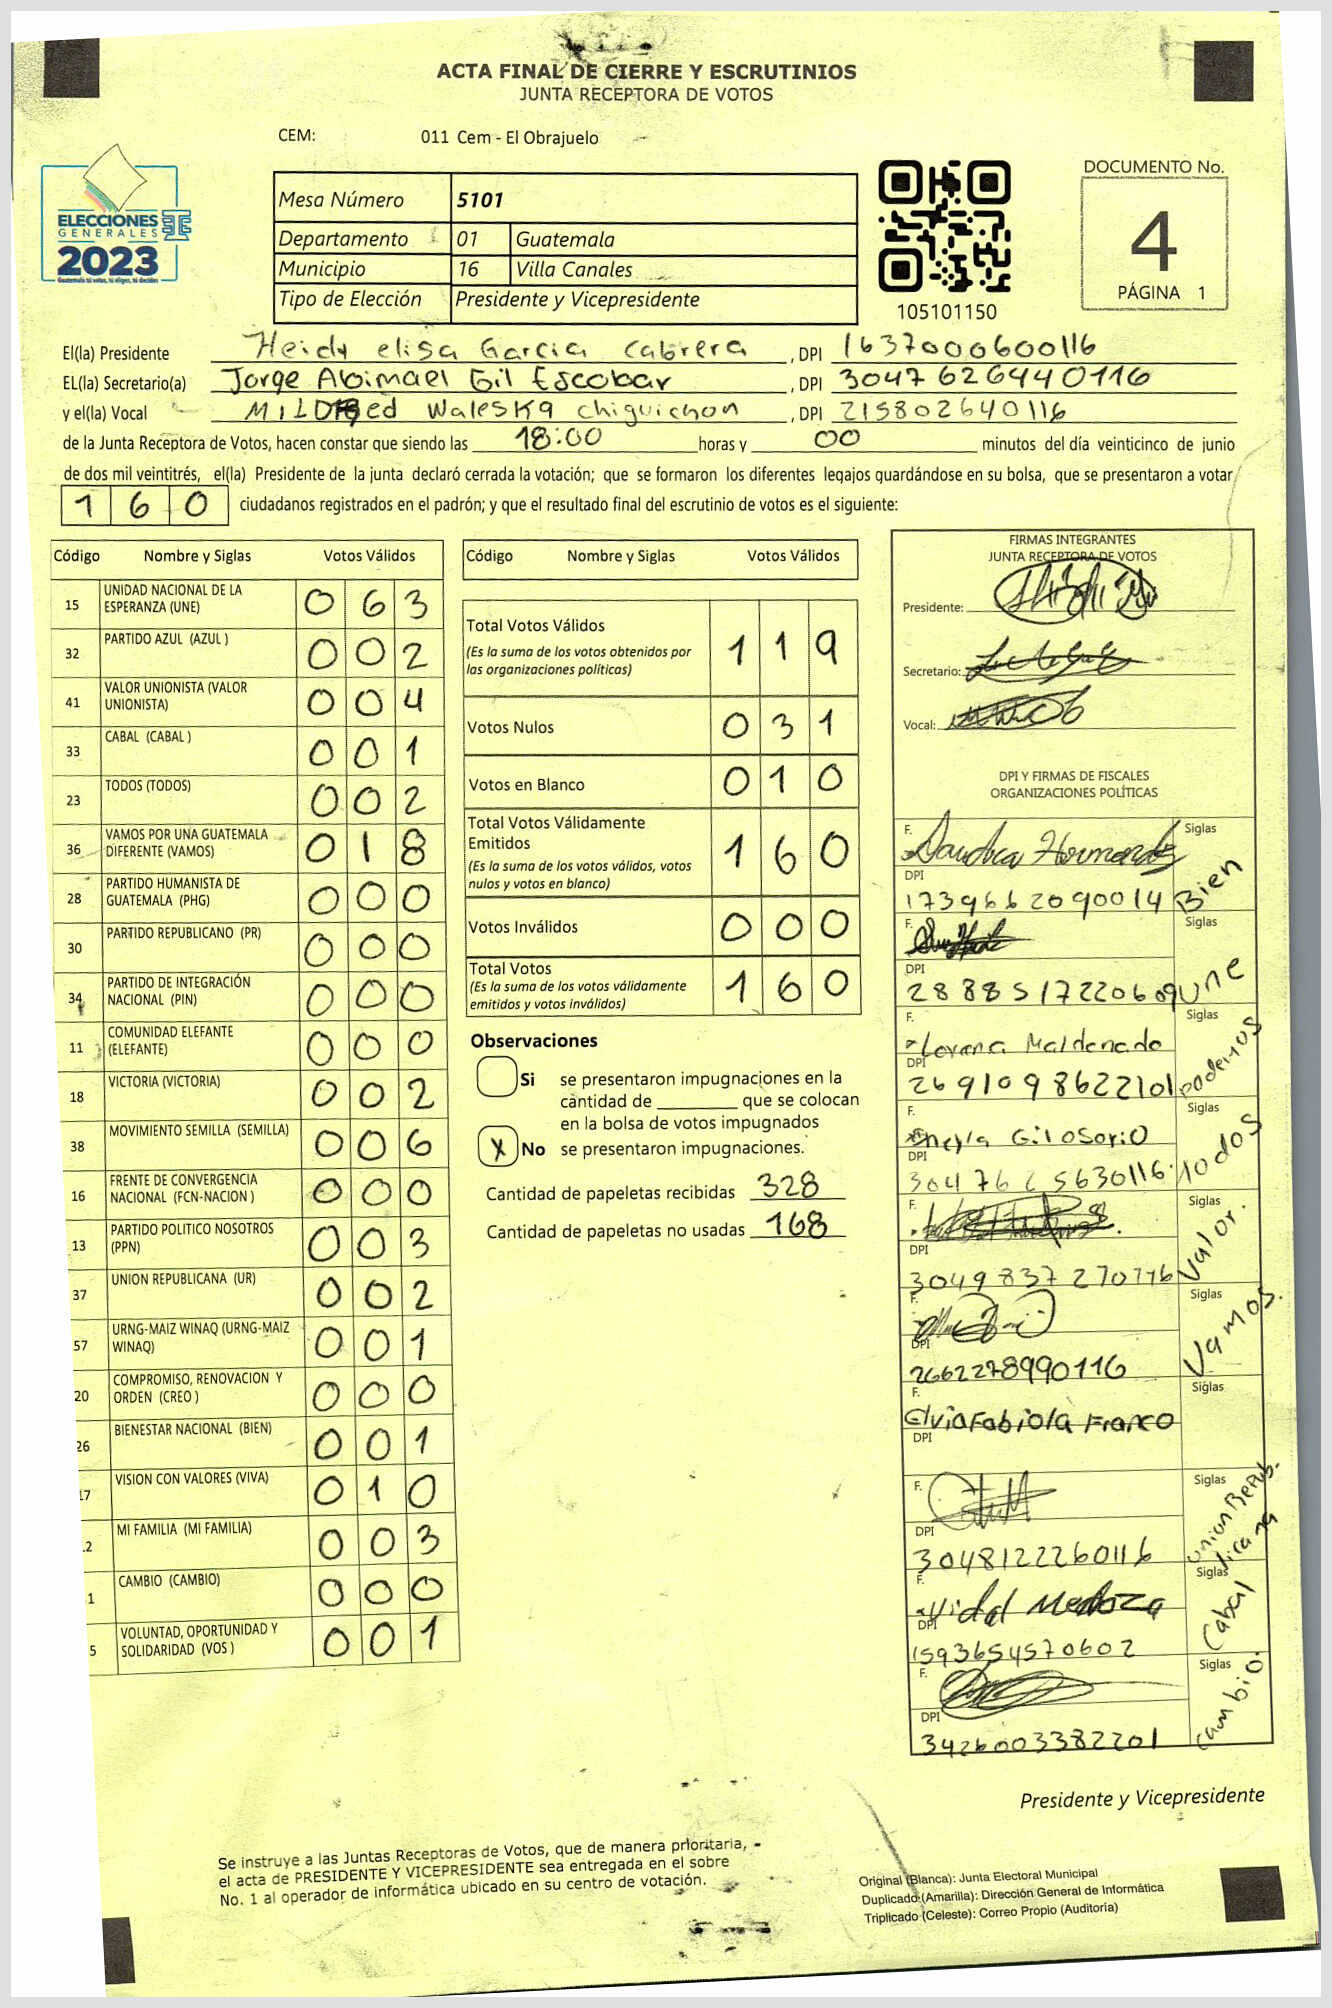 ACTA FINAL DE CIERRE Y ESCRUTINIOS
JUNTA RECEPTORA DE VOTOS
CEM: 011 Cem - El Obrajuelo
ELECCIONES
GENERALES
2023
Mesa Número 5101
Departamento 01 Guatemala
Municipio 16 Villa Canales
Tipo de Elección Presidente y Vicepresidente
105101150
DOCUMENTO No.
4
PÁGINA 1
El(la) Presidente Heidy elisa Garcia Cabrera, DPI 1637000600116
EL(la) Secretario(a) Jorge Abimael Gil Escobar, DPI 3047626440116
y el(la) Vocal Waleska chiguichon, DPI 215802640116
de la Junta Receptora de Votos, hacen constar que siendo las 18:00 horas y 00 minutos del día veinticinco de junio
de dos mil veintitrés, el(la) Presidente de la junta declaró cerrada la votación; que se formaron los diferentes legajos guardándose en su bolsa, que se presentaron a votar
160 ciudadanos registrados en el padrón; y que el resultado final del escrutinio de votos es el siguiente:
Código Nombre y Siglas Votos Válidos
15 UNIDAD NACIONAL DE LA ESPERANZA (UNE) 063
32 PARTIDO AZUL (AZUL ) 002
41 VALOR UNIONISTA (VALOR UNIONISTA) 004
33 CABAL (CABAL ) 001
23 TODOS (TODOS) 002
36 VAMOS POR UNA GUATEMALA DIFERENTE (VAMOS) 018
28 PARTIDO HUMANISTA DE GUATEMALA (PHG) 000
30 PARTIDO REPUBLICANO (PR) 000
34 PARTIDO DE INTEGRACIÓN NACIONAL (PIN) 000
11 COMUNIDAD ELEFANTE (ELEFANTE) 000
18 VICTORIA (VICTORIA) 002
38 MOVIMIENTO SEMILLA (SEMILLA) 006
16 FRENTE DE CONVERGENCIA NACIONAL (FCN-NACION ) 000
13 PARTIDO POLITICO NOSOTROS (PPN) 003
37 UNION REPUBLICANA (UR) 002
57 URNG-MAIZ WINAQ (URNG-MAIZ WINAQ) 001
20 COMPROMISO, RENOVACION Y ORDEN (CREO ) 000
26 BIENESTAR NACIONAL (BIEN) 001
17 VISION CON VALORES (VIVA) 010
2 MI FAMILIA (MI FAMILIA) 003
1 CAMBIO (CAMBIO) 000
5 VOLUNTAD, OPORTUNIDAD Y SOLIDARIDAD (VOS ) 001
Código Nombre y Siglas Votos Válidos
Total Votos Válidos 119
(Es la suma de los votos obtenidos por
las organizaciones políticas)
Votos Nulos 031
Votos en Blanco 010
Total Votos Válidamente
Emitidos 160
(Es la suma de los votos válidos, votos
nulos y votos en blanco)
Votos Inválidos 000
Total Votos 160
(Es la suma de los votos válidamente
emitidos y votos inválidos)
Observaciones
Si se presentaron impugnaciones en la
cantidad de que se colocan
en la bolsa de votos impugnados
X No se presentaron impugnaciones.
Cantidad de papeletas recibidas 328
Cantidad de papeletas no usadas 168
FIRMAS INTEGRANTES
JUNTA RECEPTORA DE VOTOS
Presidente:
Secretario:
Vocal:
DPI Y FIRMAS DE FISCALES
ORGANIZACIONES POLÍTICAS
F. Siglas
DPI
1739662090014 Bien
F. Siglas
DPI
2888517220609 une
F. Lorena Maldonado Siglas
DPI
2691098622101 podemos
F. Gil Osorio Siglas
DPI
3047625630116 Todos
F. Siglas
DPI
3049837270116 Valor.
F. Siglas
DPI
2662278990116 Vamos.
F. Elvia Fabiola Franco Siglas
DPI
F. Siglas
DPI
3048122260116 Union Republicana
F. Vidal Mendoza Siglas
DPI
1593654570602 Cabal
F. Siglas
DPI
3426003382201 Cambio.
Presidente y Vicepresidente
Se instruye a las Juntas Receptoras de Votos, que de manera prioritaria,
el acta de PRESIDENTE Y VICEPRESIDENTE sea entregada en el sobre
No. 1 al operador de informática ubicado en su centro de votación.
Original (Blanca): Junta Electoral Municipal
Duplicado (Amarilla): Dirección General de Informática
Triplicado (Celeste): Correo Propio (Auditoría)